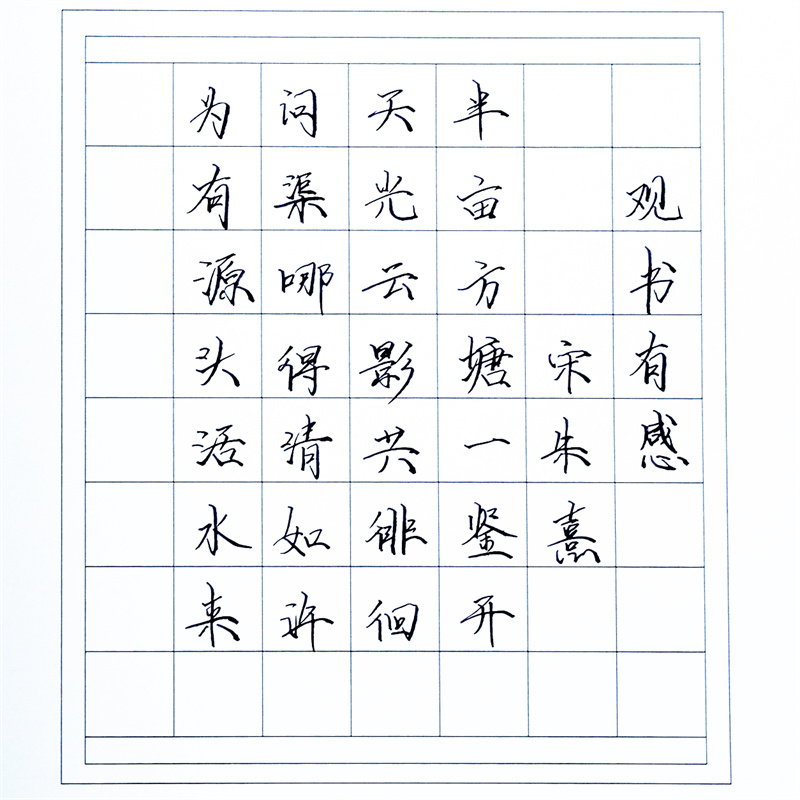 观书有感
宋朱熹
半亩方塘一鉴开
天光云影共徘徊
问渠哪得清如许
为有源头活水来